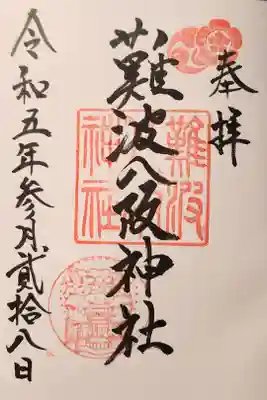 奉拝
難波八阪神社
令和五年参月貮拾八日
難波
神社